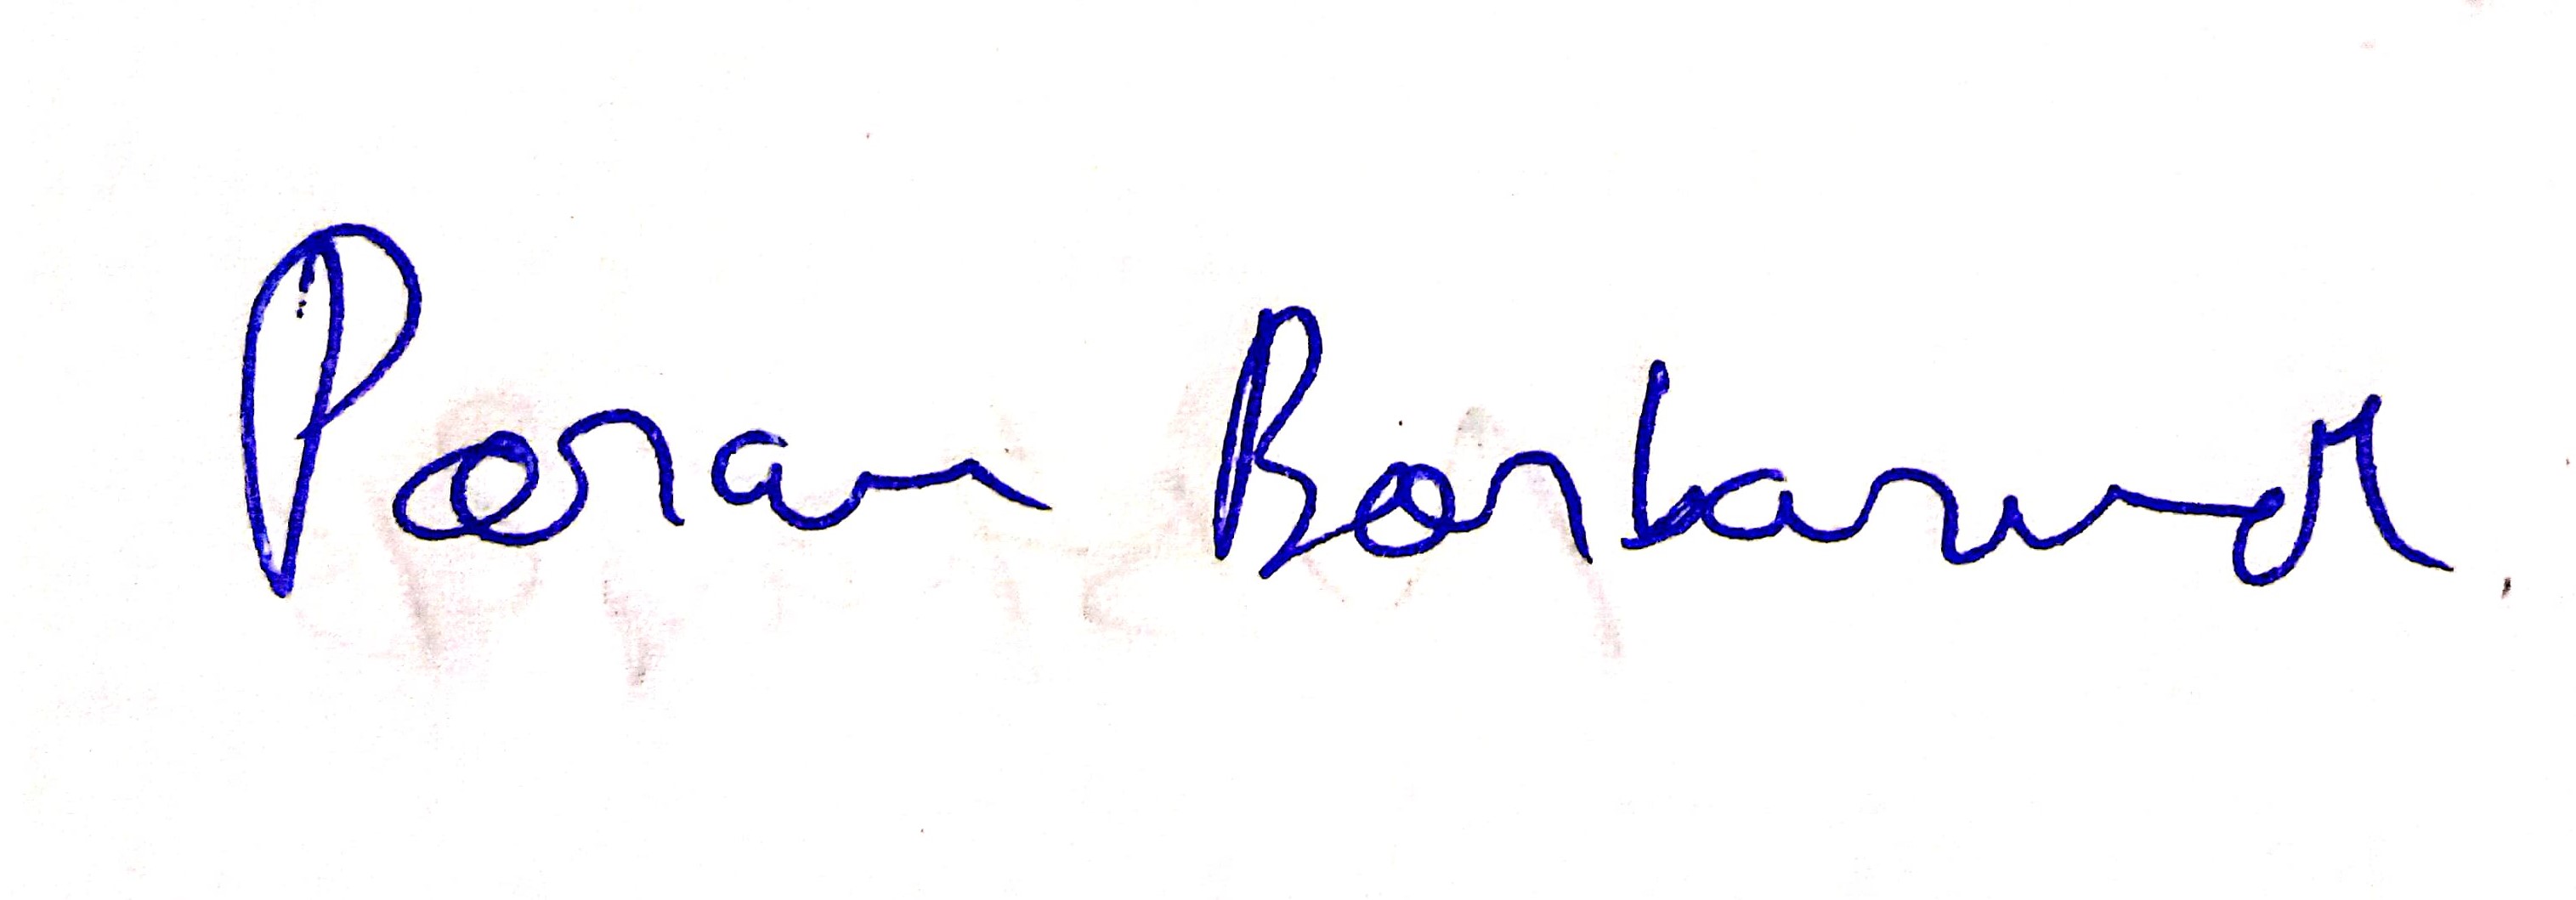 Poran Borbarud